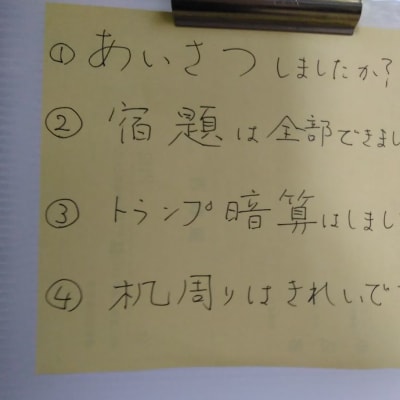 ① あいさつしましたか?
② 宿題は全部できまし
③ トランプ暗算はしまし
④ 机周りはきれいで